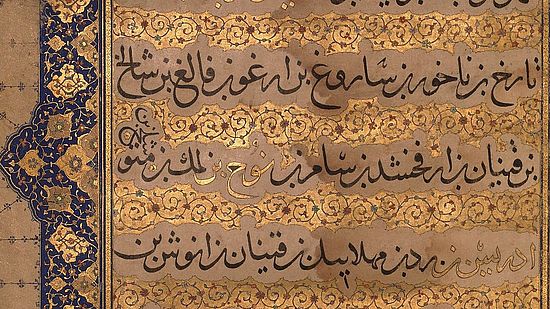 تارخ بن ناخور بن ساروغ بن ارغو بن فالغ بن شالخ
بن قينان بن ارفخشد بن سام بن نوح بن لمك بن متوشلخ بن
ادريس بن يرد بن مهلاييل بن قينان بن انوش بن